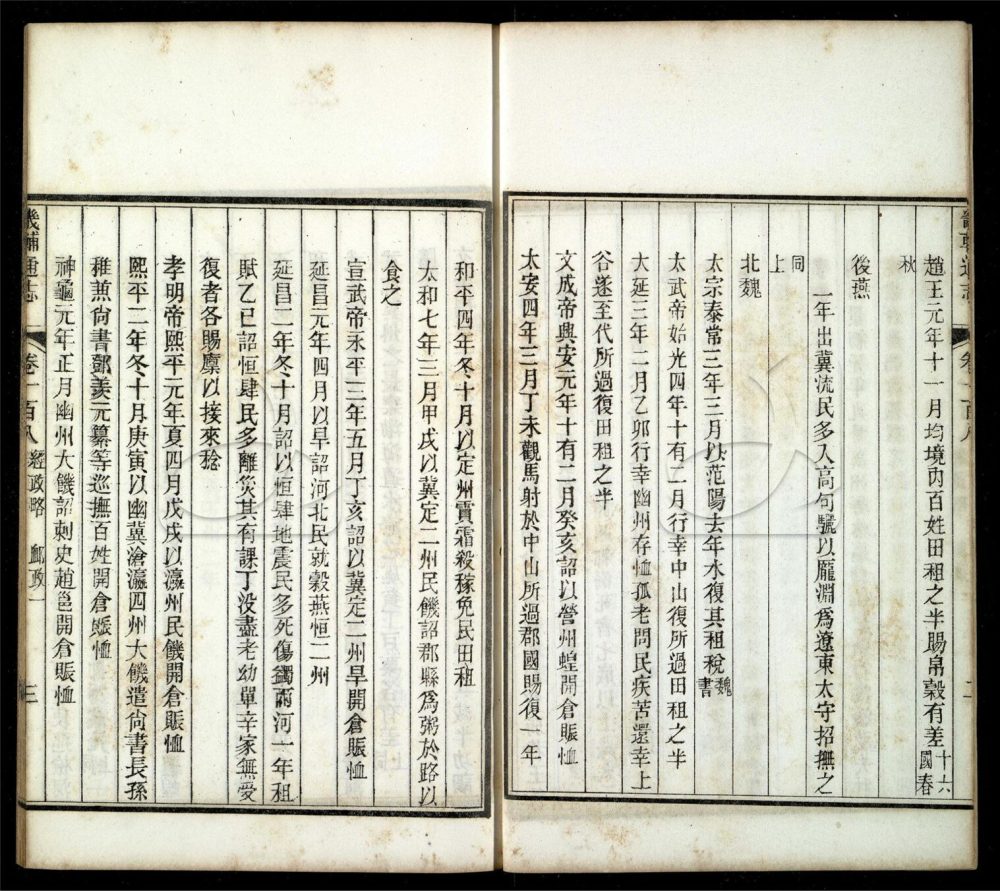 趙王元年十一月均境內百姓田租之半賜帛穀有差十六國春
秋
後燕
二年出冀流民多入高句驪以龐淵爲遼東太守招撫之
同上
北魏
太宗泰常三年三月以范陽去年水復其租稅魏書
太武帝始光四年十有二月行幸中山復所過田租之半
大延三年二月乙卯行幸幽州存恤孤老問民疾苦還幸上
谷遂至代所過復田租之半
文成帝興安元年十有二月癸亥詔以營州蝗開倉賑恤
太安四年三月丁未觀馬射於中山所過郡國賜復一年
和平四年冬十月以定州霣霜殺稼免民田租
太和七年三月甲戌以冀定二州民饑詔郡縣爲粥於路以
食之
宣武帝永平三年五月丁亥詔以冀定二州旱開倉賑恤
延昌元年四月以旱詔河北民就穀燕恒二州
延昌二年冬十月詔以恒肆地震民多死傷蠲兩河一年租
賦乙巳詔恒肆民多離災其有課丁沒盡老幼單辛家無受
復者各賜廩以接來稔
孝明帝熙平元年夏四月戊戌以瀛州民饑開倉賑恤
熙平二年冬十月庚寅以幽冀滄瀛四州大饑遣尚書長孫
稚兼尚書鄧羨元纂等巡撫百姓開倉賑恤
神龜元年正月幽州大饑詔刺史趙邕開倉賑恤
畿輔通志 卷一百八 經政略 卹政一 三